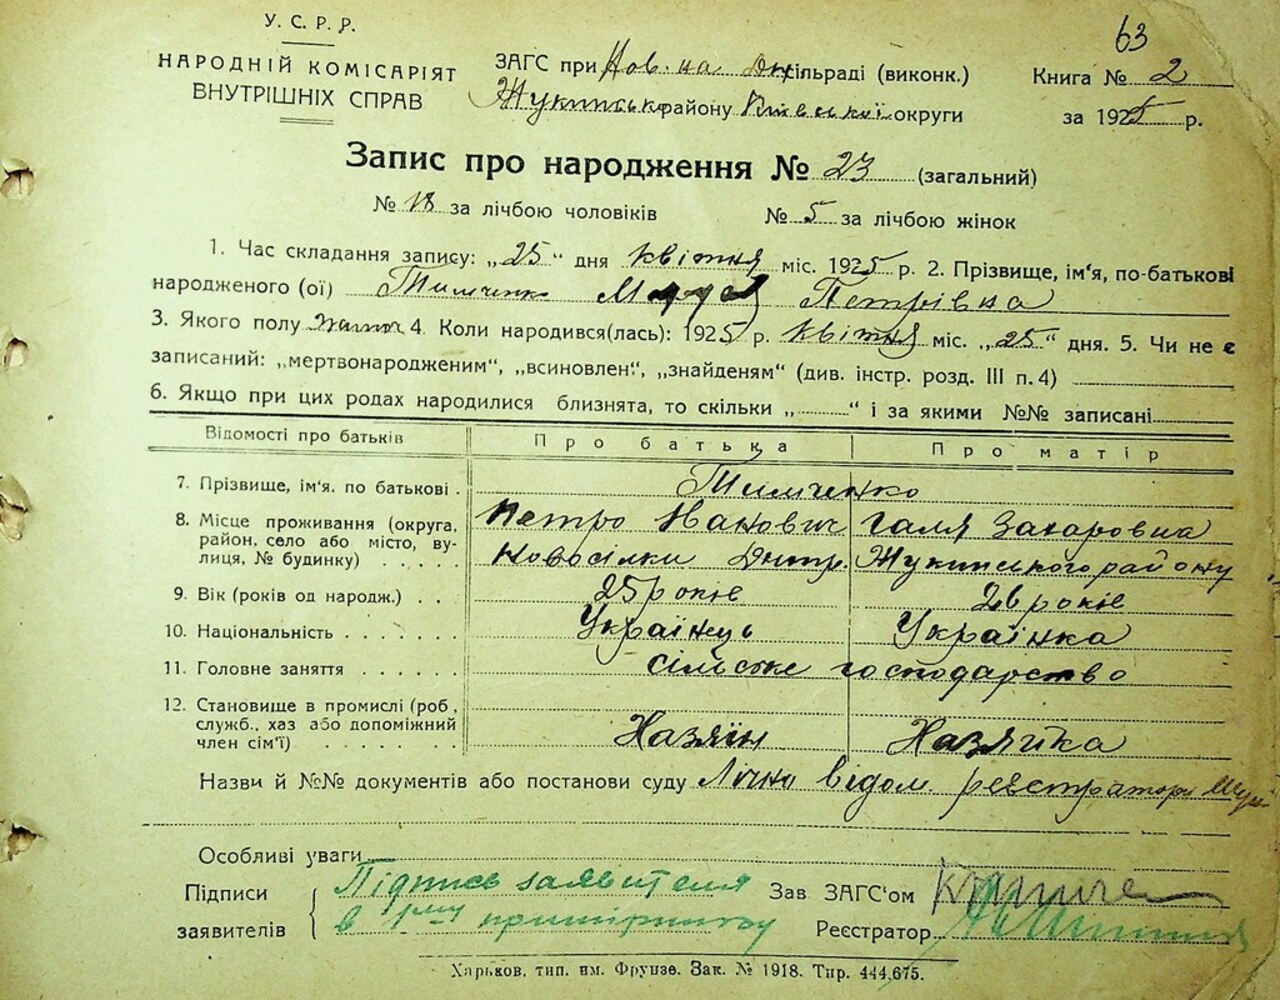 63
У. С. Р. Р.
НАРОДНІЙ КОМІСАРІЯТ
ВНУТРІШНІХ СПРАВ
ЗАГС при Нов. на Дн. сільраді (виконк.)
Жукинськ. району Київської округи
Книга № 2
за 1925 р.
Запис про народження № 23 (загальний)
№ 18 за лічбою чоловіків № 5 за лічбою жінок
1. Час складання запису: „25“ дня квітня міс. 1925 р. 2. Прізвище, ім‘я, по-батькові
народженого (ої) Тимченко Петрівна
3. Якого полу 4. Коли народився(лась): 1925 р. квітня міс. „25“ дня. 5. Чи не є
записаний: „мертвонародженим“, „всиновлен“, „знайденям“ (див. інстр. розд. III п. 4)
6. Якщо при цих родах народилися близнята, то скільки „ “ і за якими №№ записані
Відомості про батьків Про батька Про матір
7. Прізвище, ім‘я. по батькові . Тимченко
8. Місце проживання (округа, Петро Іванович Галя Захаровна
район, село або місто, ву-
лиця, № будинку) . . . . . Новосілки Днпр. Жукинського району
9. Вік (років од народж.) . . 25 років 26 років
10. Національність . . . . . . . Українець Українка
11. Головне заняття . . . . . . сільське господарство
12. Становище в промислі (роб.,
служб., хаз або допоміжний
член сім‘ї) . . . . . . . Хазяїн Хазяйка
Назви й №№ документів або постанови суду Лічно відом. реєстратори
Особливі уваги
Підписи Підпис заявителя Зав. ЗАГС‘ом
заявителів в 1му примірнику Реєстратор
Харьков, тип. им. Фрунзе. Зак. № 1918. Тир. 444.675.